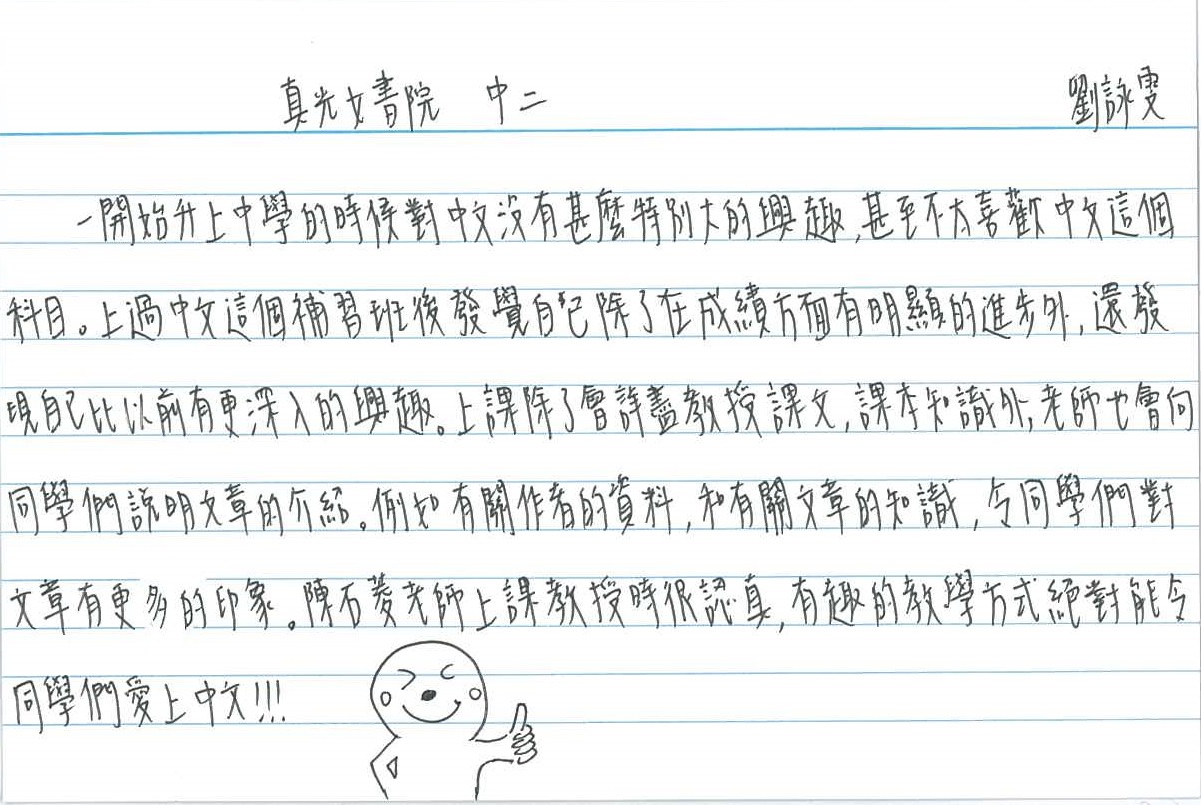 真光女書院 中二 劉詠雯
一開始升上中學的時候對中文沒有甚麼特別大的興趣,甚至不太喜歡中文這個
科目。上過中文這個補習班後發覺自己除了在成績方面有明顯的進步外,還發
現自己比以前有更深入的興趣。上課除了會詳盡教授課文,課本知識外,老師也會向
同學們說明文章的介紹。例如有關作者的資料,和有關文章的知識,令同學們對
文章有更多的印象。陳石菱老師上課教授時很認真,有趣的教學方式絕對能令
同學們愛上中文!!!